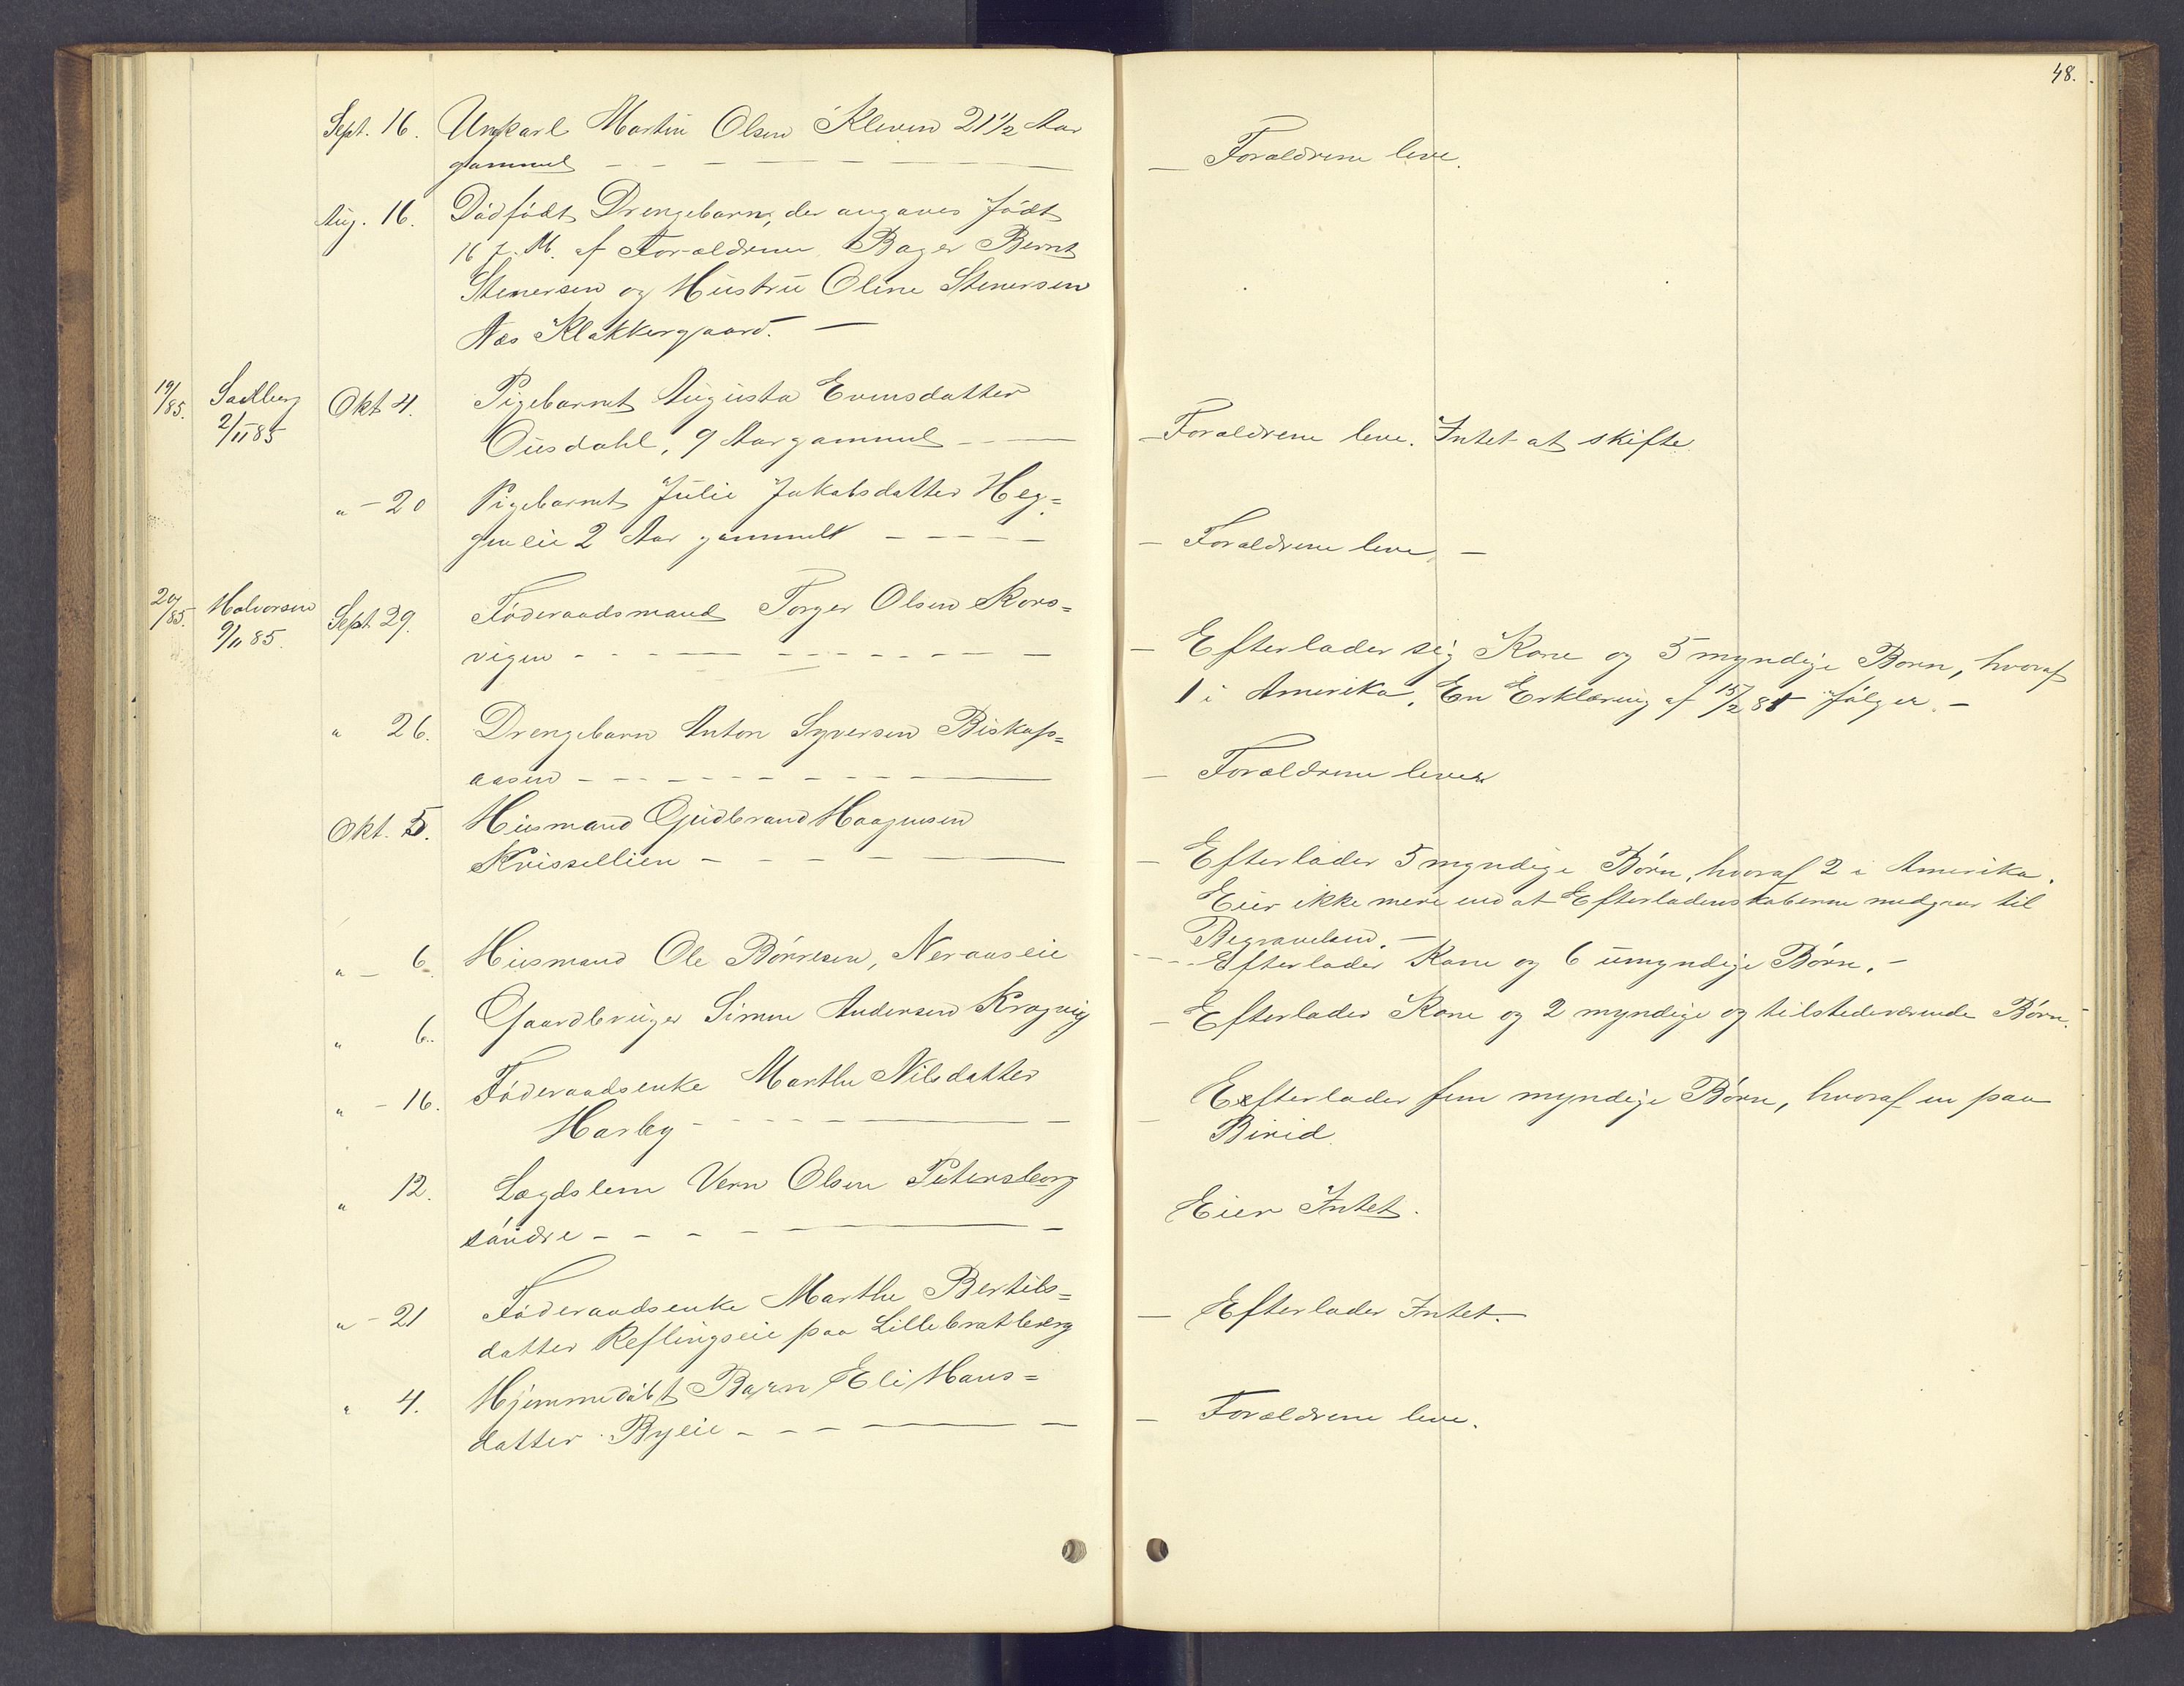 48.
Sept. 16. Ungkarl Martin Olsen Kleven 21 1/2 Aar
gammel - - - — Forældrene leve.
Aug. 16. Dødfødt Drengebarn, der angaves født
16 f. M. af Forældrene Bager Bernt
Stenersen og Hustru Oline Stenersen
Næs Klakkergaard. —
19/85. Sælberg 2/11 85 Okt 4. Pigebarnet Augusta Evensdatter
Ousdahl, 9 Aar gammel - — — Forældrene leve. Intet at skifte
" - 20 Pigebarnet Julie Jakobsdatter Heg-
geneie 2 Aar gammelt - - - - — Forældrene leve. —
20/85. Halvorsen 9/11 85. Sept 29. Føderaadsmand Torger Olsen Kors-
vigen - - - — - - - — — Efterlader sig Kone og 5 myndige Born, hvoraf
1 i Amerika. En Erklæring af 15/2 85 følger. —
" 26. Drengebarn Anton Syversen Biskops-
aasen - - - - - — — Forældrene lever
Okt. 5. Husmand Gudbrand Haagensen
Kvissellien - - - - — — Efterlader 5 myndige Børn, hvoraf 2 i Amerika.
Eier ikke mere end at Efterladenskaberne medgaar til
Begravelsen. —
" - 6. Husmand Ole Børresen, Neraaseie - - - Efterlader Kone og 6 umyndige Børn. —
" 6. Gaardbruger Simen Andersen Kragvig — Efterlader Kone og 2 myndige og tilstedeværende Børn.
" - 16. Føderaadsenke Marthe Nilsdatter
Harby - - - - — Efterlader fem myndige Børn, hvoraf en paa
Birid.
" 12. Lægdslem Vern Olsen Petersborg
søndre - - - - — Eier Intet.
" - 21 Føderaadsenke Marthe Bertils-
datter Reflingseie paa Lillebratberg — Efterlader Intet. —
" 4. Hjemmedøbt Barn Eli Hans-
datter Byeie - - - — — Forældrene leve.